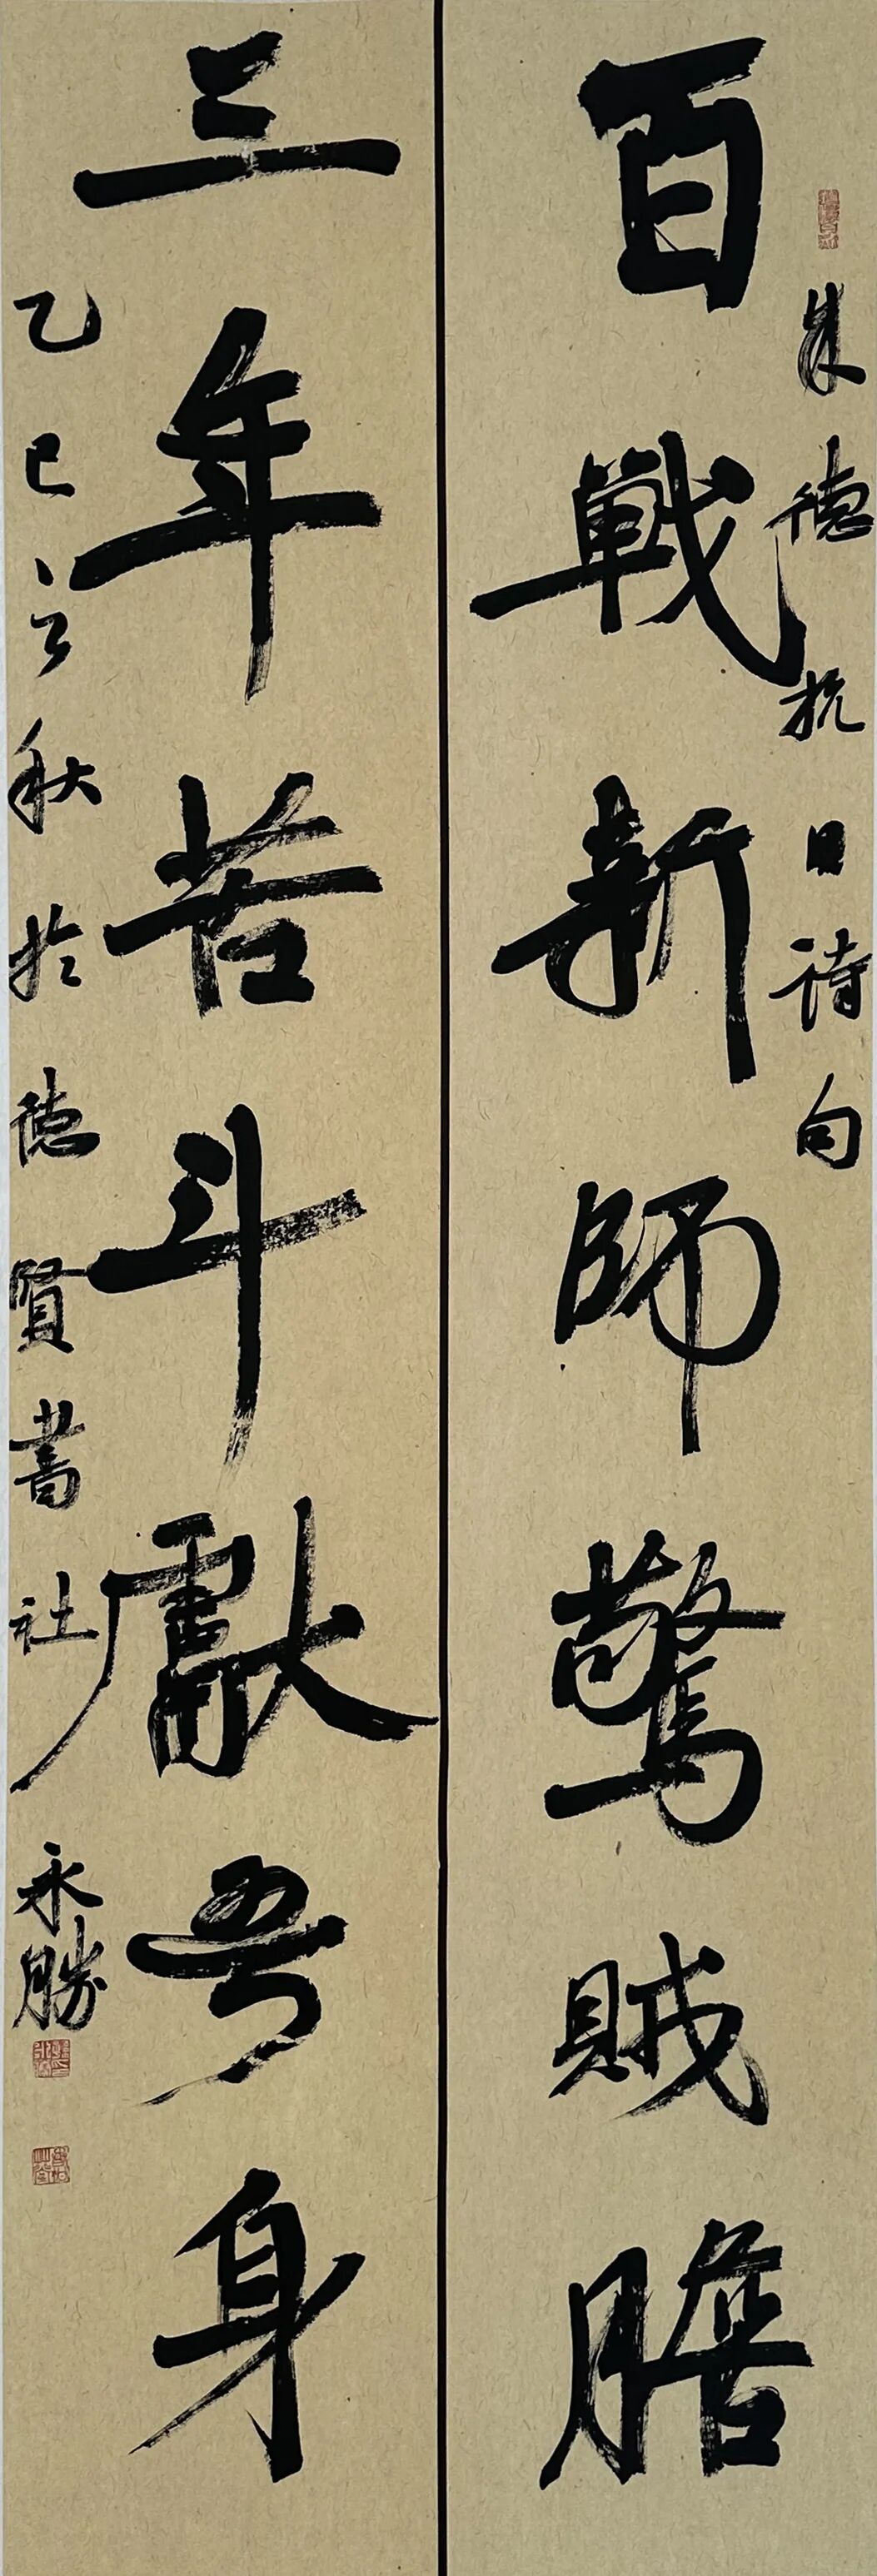 朱德抗日诗句
百戰新師驚賊膽
三年苦斗獻吾身
乙巳之秋於德賢書社
永勝